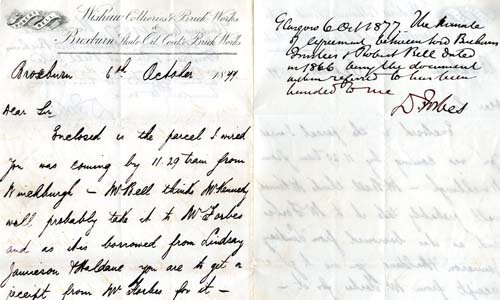 Wishaw Collieries & Brick Works
&
Broxburn Shale Oil, Coal & Brick Works
Broxburn 6th October 1877
Dear Sir
Enclosed is the parcel I wired
you was coming by 11.29 train from
Winchburgh – Mr Bell thinks Mr Kennedy
will probably take it to Mr Forbes
and as it is borrowed from Lindsay
Jamieson & Haldane you are to get a
receipt from Mr Forbes for it –
Glasgow 6 Oct 1877. The
of Agreement between Lord Buchans
Trustees & Robert Bell dated
in 1866 being the document
within referred to has been
handed to me
D Forbes